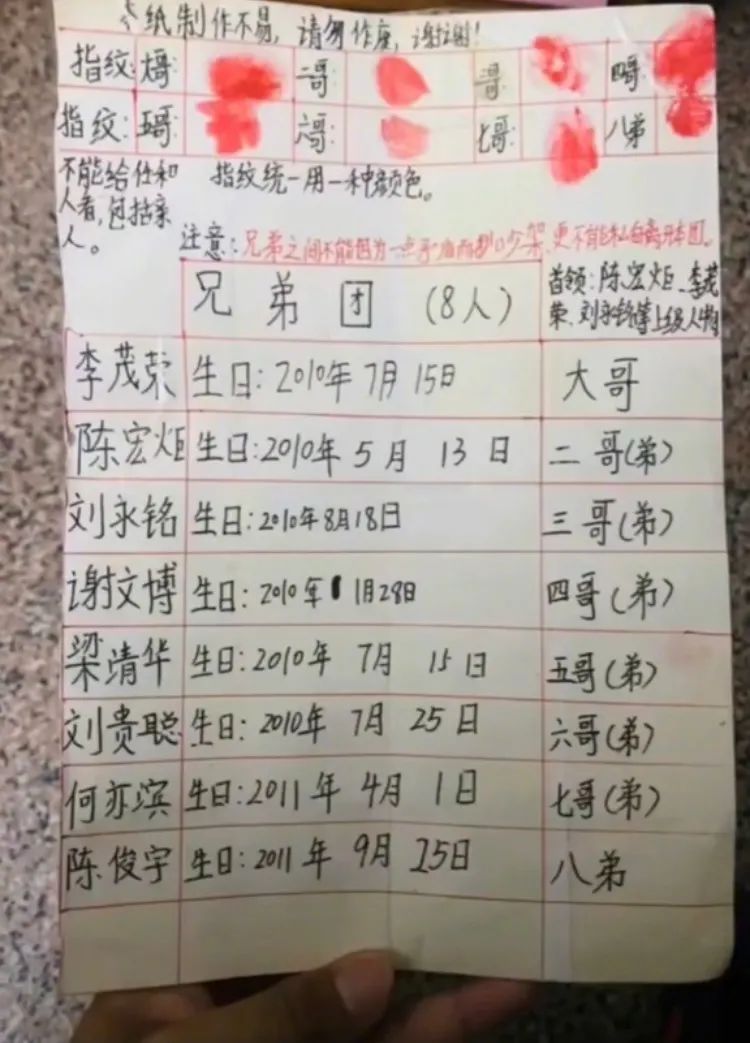 纸制作不易，请勿作废，谢谢！
指纹：大哥： 二哥： 三哥： 四哥：
指纹：五哥： 六哥： 七哥： 八弟
不能给任和
人看，包括亲
人。
指纹统一用一种颜色。
注意：兄弟之间不能因为一点矛盾而吵架，更不能私自离开本团。
兄弟团（8人）
首领：陈宏炬、李茂
荣、刘永铭等上级人物
李茂荣 生日：2010年7月15日 大哥
陈宏炬 生日：2010年5月13日 二哥（弟）
刘永铭 生日：2010年8月18日 三哥（弟）
谢文博 生日：2010年1月28日 四哥（弟）
梁清华 生日：2010年7月15日 五哥（弟）
刘贵聪 生日：2010年7月25日 六哥（弟）
何亦滨 生日：2011年4月1日 七哥（弟）
陈俊宇 生日：2011年9月25日 八弟